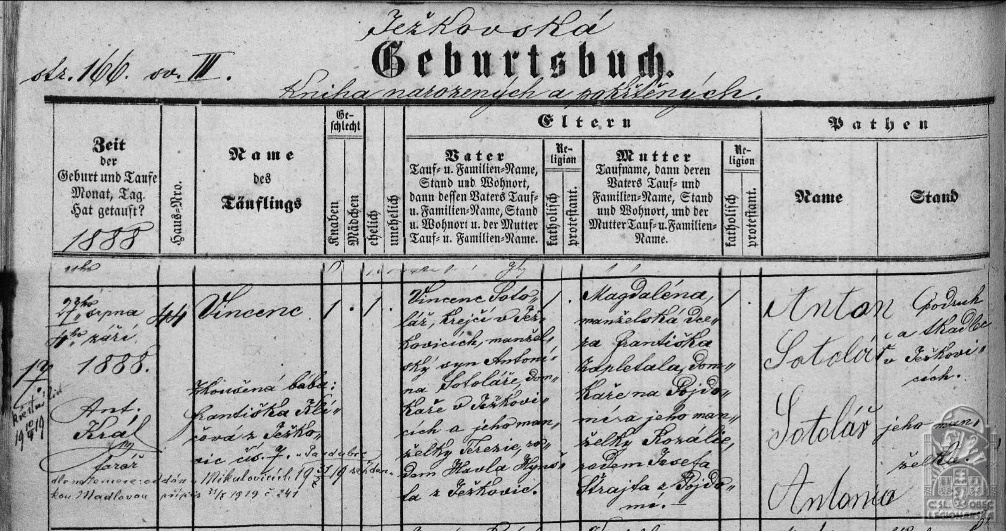 Ježkovská
Geburtsbuch.
str. 166. sv. III.
Kniha narozených a pokřtěných.
Zeit
der
Geburt und Taufe
Monat, Tag.
Hat getauft?
1888
Haus-Nro.
Name
des
Täuflings
Ge-
schlecht
Knaben
Mädchen
ehelich
unehelich
Eltern
Vater
Tauf- u. Familien-Name,
Stand und Wohnort,
dann dessen Vaters Tauf-
u. Familien-Name, Stand
u. Wohnort u. der Mutter
Tauf- u. Familien-Name.
Re-
ligion
katholisch
protestant.
Mutter
Taufname, dann deren
Vaters Tauf- und
Familien-Name, Stand
und Wohnort, und der
Mutter Tauf- u. Familien-
Name.
Re-
ligion
katholisch
protestant.
Pathen
Name
Stand
srpna
září
1888.
Ant.
Král
farář
44
Vincenc
1
1
Zkoušená bába:
Františka
z Ježko-
vic čís. 7.
Mikulovicích
1919 č. 341
Vincenc Soto-
lář, krejčí v Jež-
kovicích, manžel-
ský syn Antoní-
na Sotoláře, dom-
kaře v Ježkovi-
cích a jeho man-
želky Terezie, ro-
dem Havla
z Ježkovic.
1
Magdaléna,
manželská dce-
ra Františka
Zapletala, dom-
kaře na Pojdo-
mí a jeho man-
želky Rozálie,
rodem Josefa
Strajta z Pojdo-
mí.
1
Anton
Sotolář
Sotolář
Antonia
Podruh
a tkadlec
v Ježkovi-
cích.
jeho man-
želka
ČS. OBEC
LEGIONÁŘSKÁ